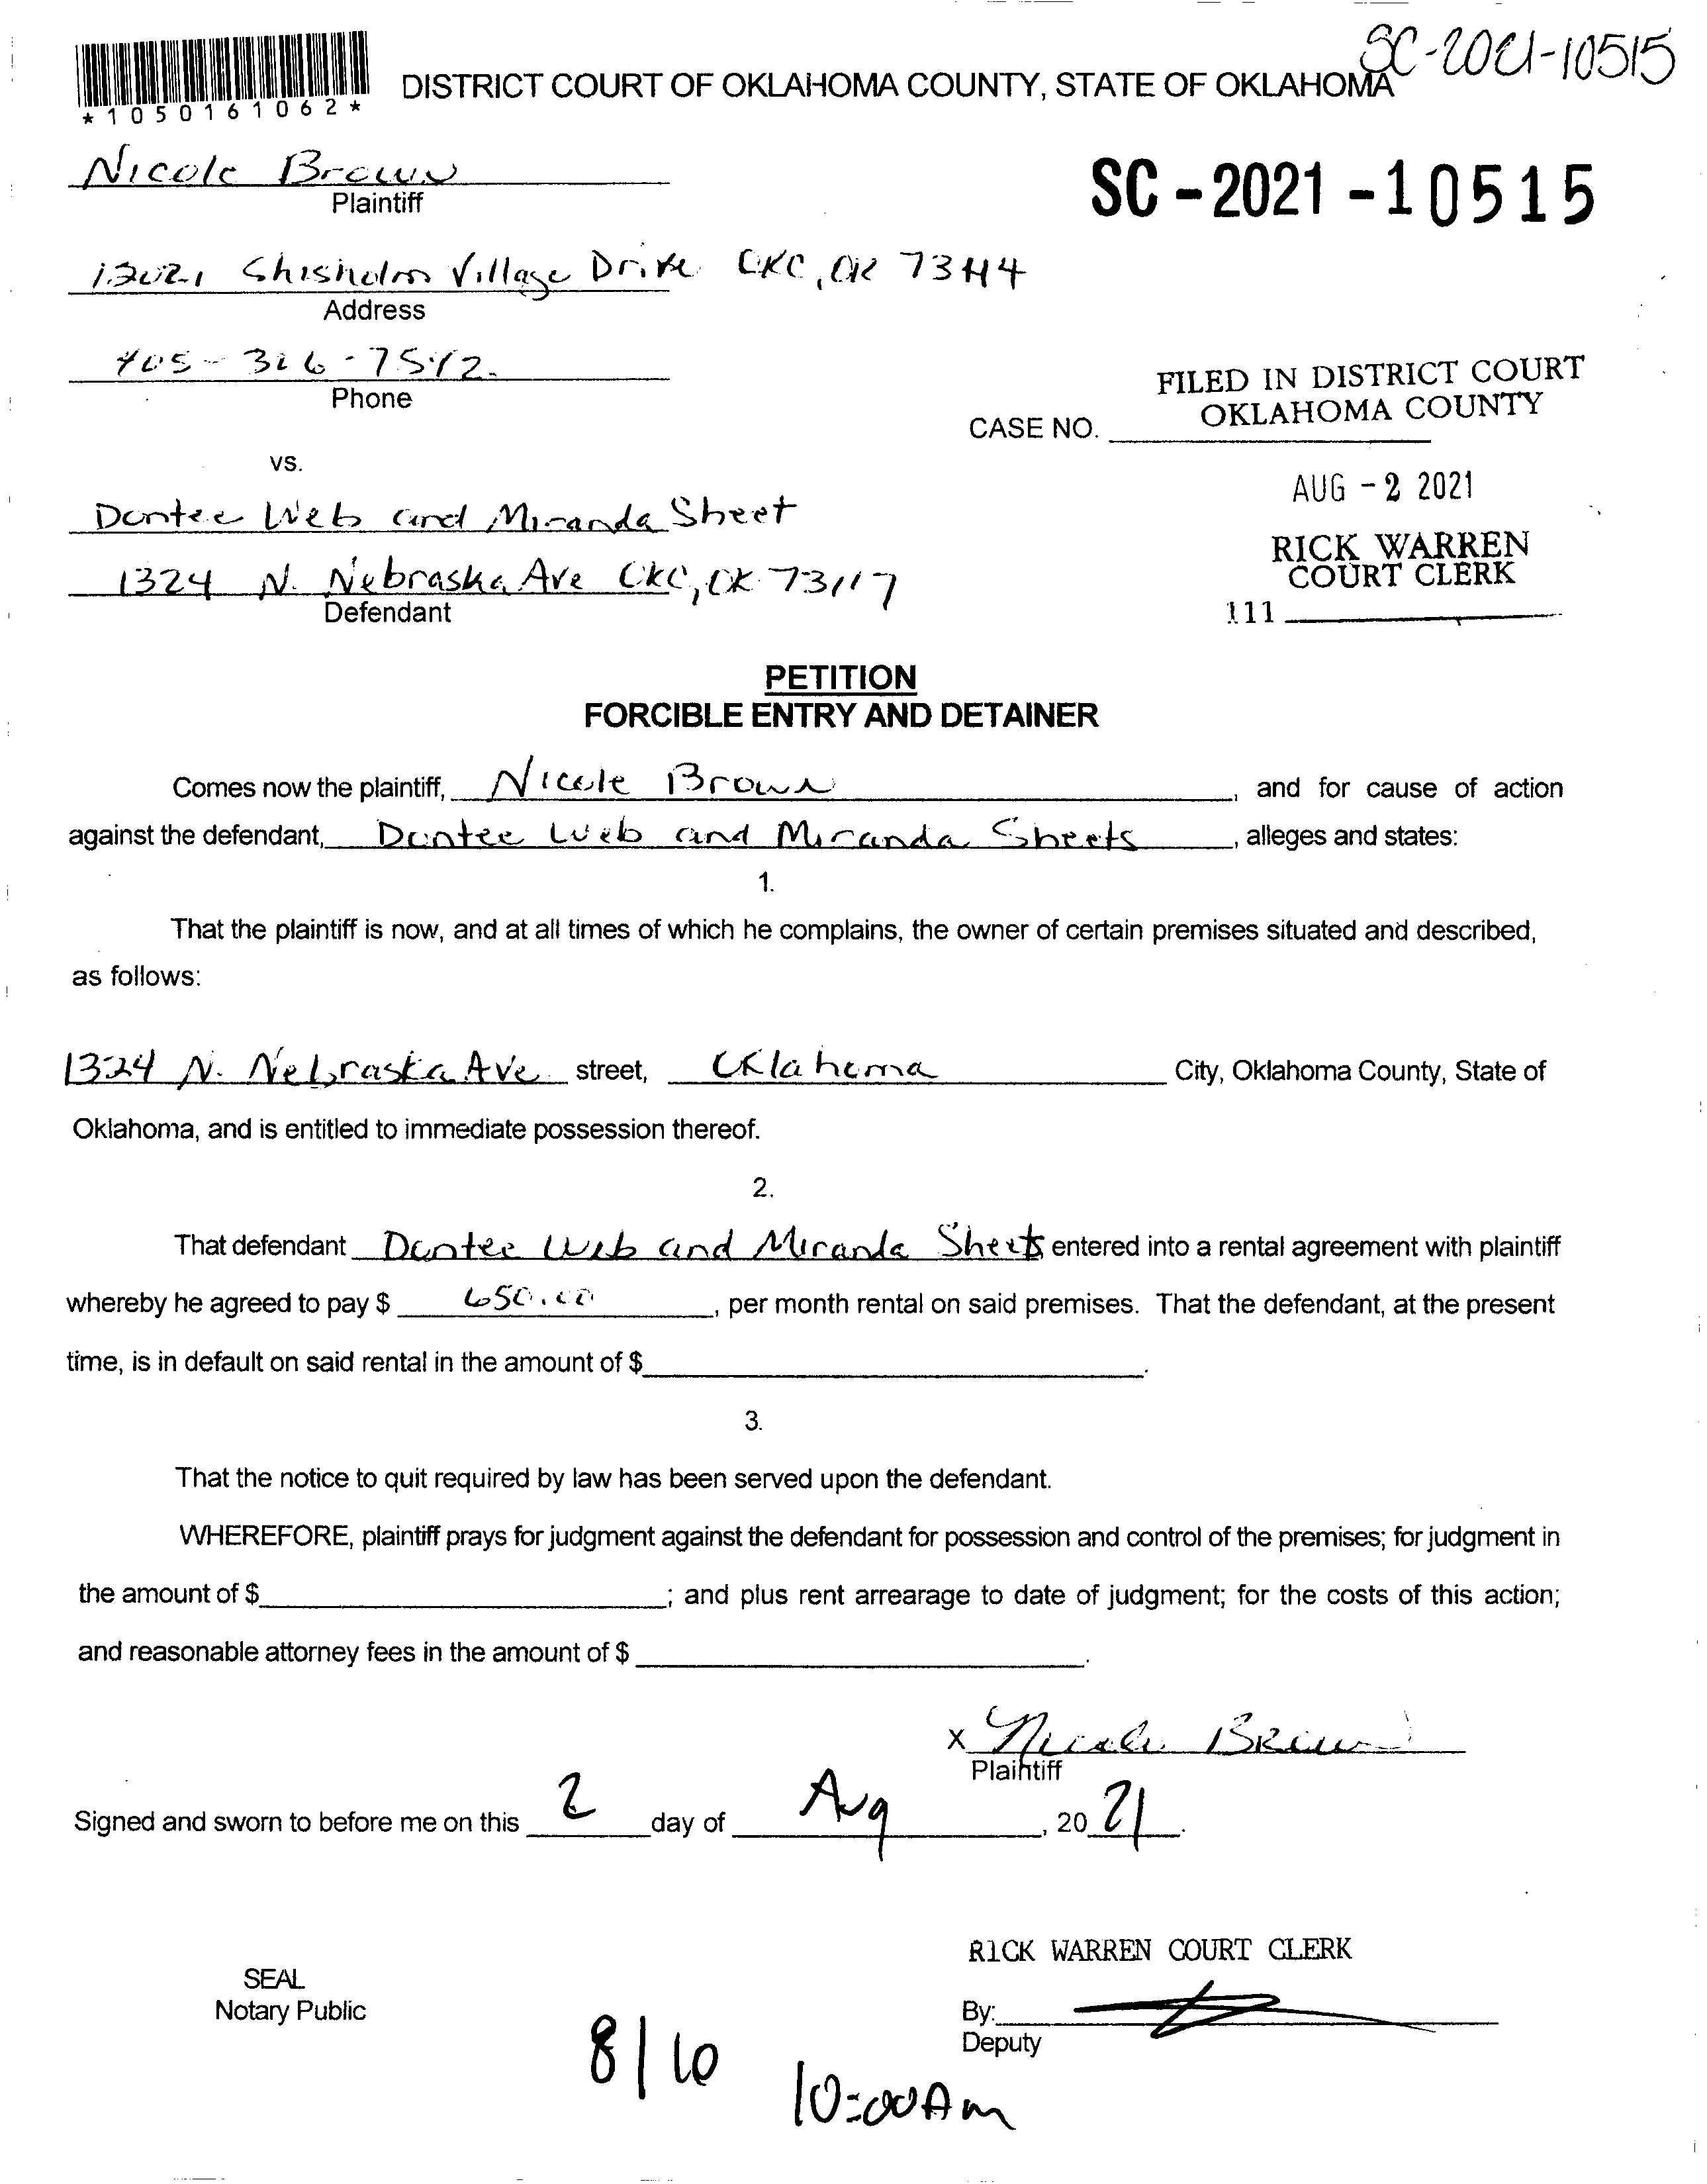 SC-2021-10515
*1050161062*
DISTRICT COURT OF OKLAHOMA COUNTY, STATE OF OKLAHOMA
Nicole Brown
Plaintiff
SC-2021-10515
Shisholm Village Drive OKC, OK
Address
Phone
FILED IN DISTRICT COURT
OKLAHOMA COUNTY
CASE NO.
vs.
AUG - 2 2021
Dontee Web and Miranda Sheet
RICK WARREN
COURT CLERK
1324 N. Nebraska Ave OKC, OK 73117
Defendant
111
PETITION
FORCIBLE ENTRY AND DETAINER
Comes now the plaintiff, Nicole Brown, and for cause of action
against the defendant, Dontee Web and Miranda Sheets, alleges and states:
1.
That the plaintiff is now, and at all times of which he complains, the owner of certain premises situated and described,
as follows:
1324 N. Nebraska Ave street, Oklahoma City, Oklahoma County, State of
Oklahoma, and is entitled to immediate possession thereof.
2.
That defendant Dontee Web and Miranda Sheets entered into a rental agreement with plaintiff
whereby he agreed to pay $ 650.00, per month rental on said premises. That the defendant, at the present
time, is in default on said rental in the amount of $.
3.
That the notice to quit required by law has been served upon the defendant.
WHEREFORE, plaintiff prays for judgment against the defendant for possession and control of the premises; for judgment in
the amount of $; and plus rent arrearage to date of judgment; for the costs of this action;
and reasonable attorney fees in the amount of $.
x Nicole Brown
Plaintiff
Signed and sworn to before me on this 2 day of Aug, 20 21.
RICK WARREN COURT CLERK
SEAL
Notary Public
By:
Deputy
8/10
10:00 Am